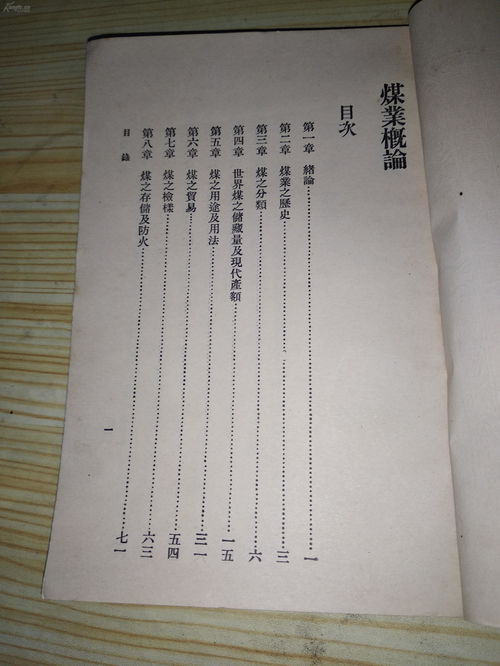 煤業概論
目次
第一章 緒論……一
第二章 煤業之歷史……三
第三章 煤之分類……六
第四章 世界煤之儲藏量及現代產額……一五
第五章 煤之用途及用法……三一
第六章 煤之貿易……五四
第七章 煤之檢樣……六三
第八章 煤之存儲及防火……七一
目錄 一